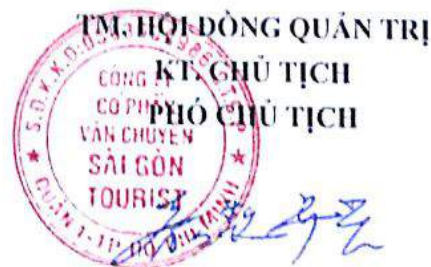 TM. HỘI ĐỒNG QUẢN TRỊ
KT. CHỦ TỊCH
PHÓ CHỦ TỊCH
CÔNG TY
CỔ PHẦN
VẬN CHUYỂN
SÀI GÒN
TOURIST
QUẬN 1-TP HỒ CHÍ MINH